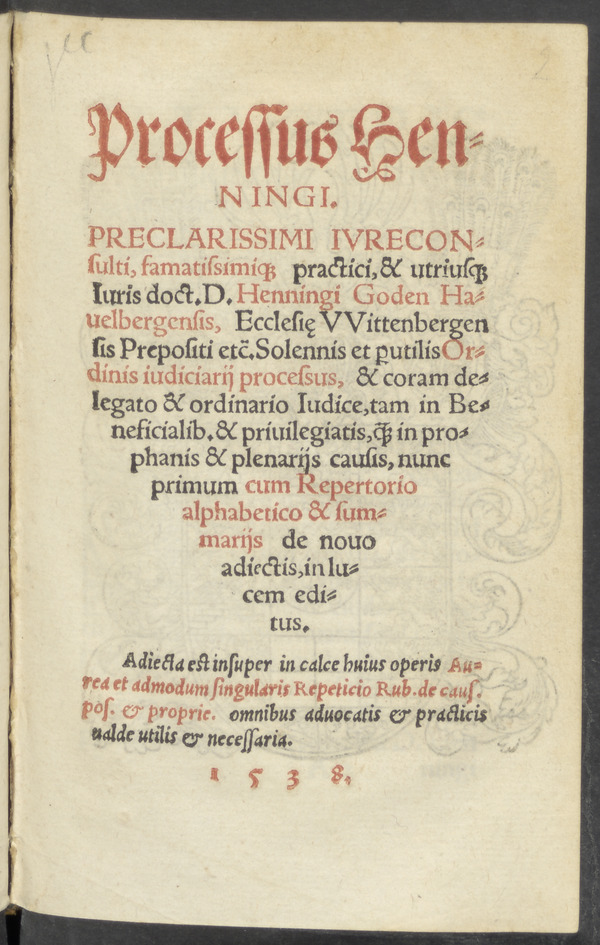 Proceſſus Hen⸗
NINGI.
PRECLARISSIMI IVRECON⸗
ſulti, famatiſsimiqꝫ practici, & utriuſqꝫ
Iuris doct. D. Henningi Goden Ha⸗
uelbergenſis, Eccleſię VVittenbergen
ſis Prepoſiti etc̄. Solennis et ꝑutilis Or⸗
dinis iudiciarij proceſsus, & coram de⸗
legato & ordinario Iudice, tam in Be⸗
neficialib. & priuilegiatis, ꝙ̃ in pro⸗
phanis & plenarijs cauſis, nunc
primum cum Repertorio
alphabetico & ſum⸗
marijs de nouo
adiectis, in lu⸗
cem edi⸗
tus.
Adiecta eſt inſuper in calce huius operis Au⸗
rea et admodum ſingularis Repeticio Rub. de cauſ.
poſ. & proprie. omnibus aduocatis & practicis
ualde utilis & neceſſaria.
1 5 3 8.